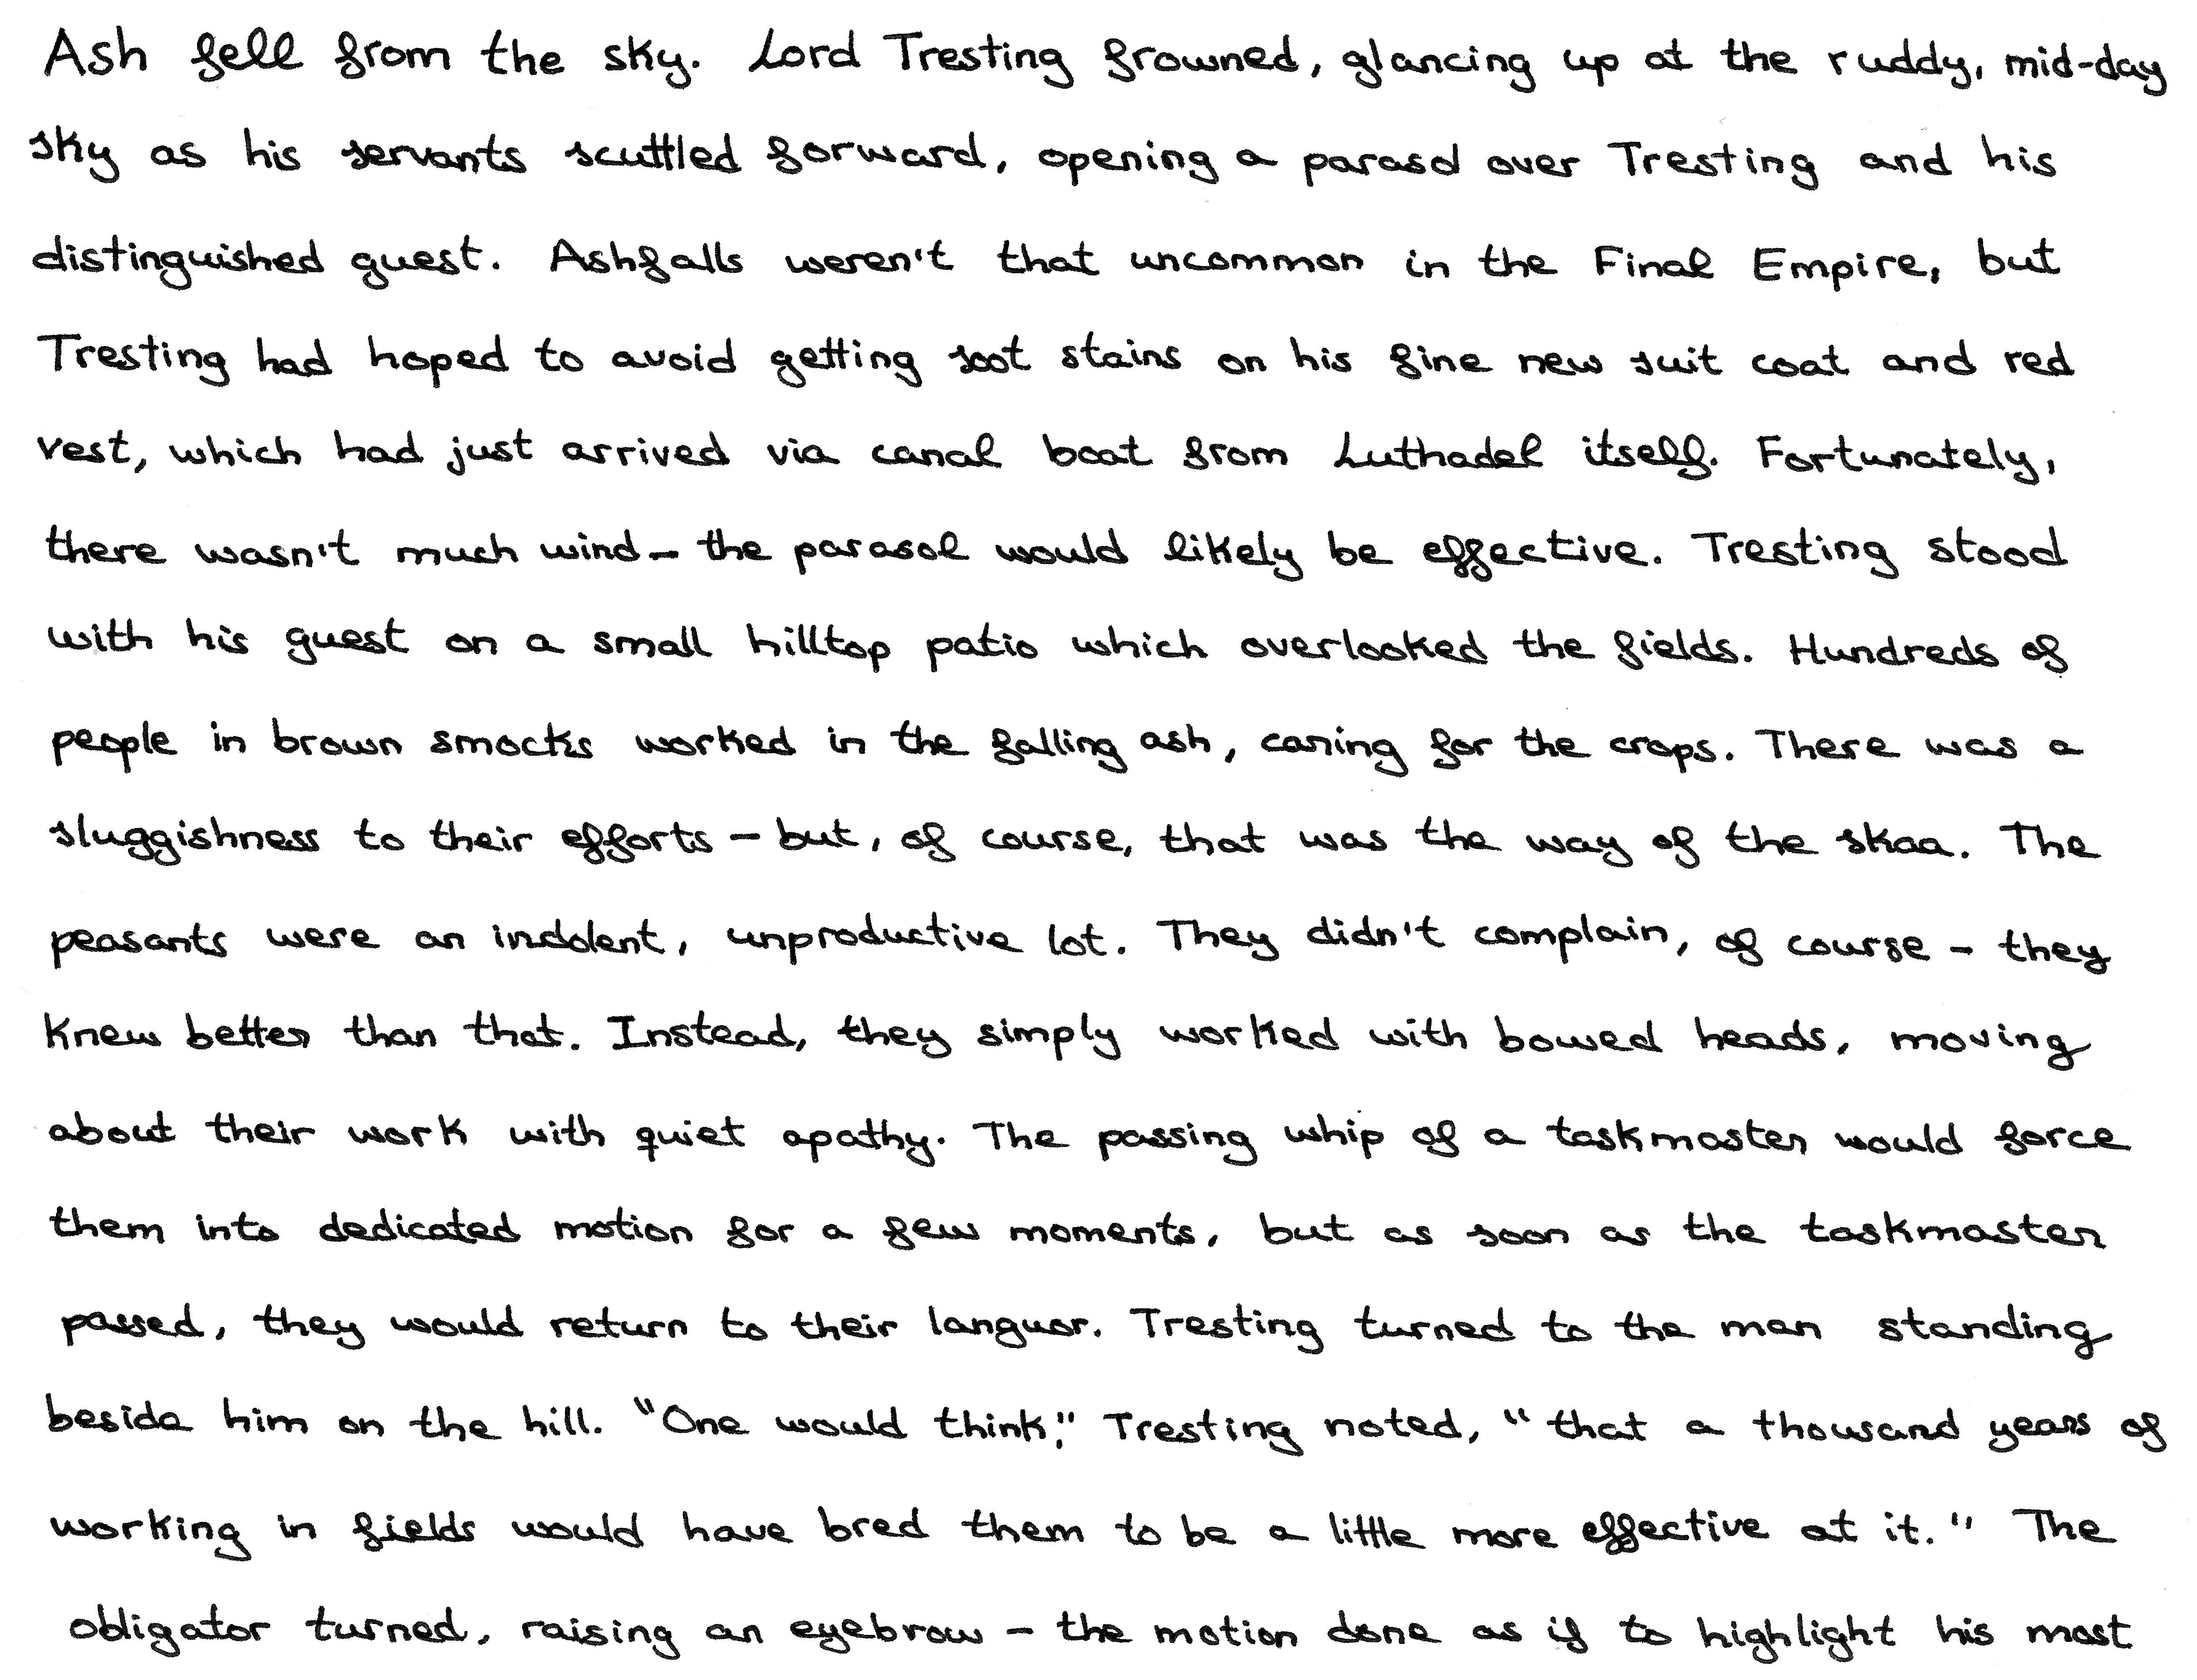 Ash fell from the sky. Lord Tresting frowned, glancing up at the ruddy, mid-day
sky as his servants scuttled forward, opening a parasol over Tresting and his
distinguished guest. Ashfalls weren't that uncommon in the Final Empire, but
Tresting had hoped to avoid getting soot stains on his fine new suit coat and red
vest, which had just arrived via canal boat from Luthadel itself. Fortunately,
there wasn't much wind - the parasol would likely be effective. Tresting stood
with his guest on a small hilltop patio which overlooked the fields. Hundreds of
people in brown smocks worked in the falling ash, caring for the crops. There was a
sluggishness to their efforts - but, of course, that was the way of the skaa. The
peasants were an indolent, unproductive lot. They didn't complain, of course - they
knew better than that. Instead, they simply worked with bowed heads, moving
about their work with quiet apathy. The passing whip of a taskmaster would force
them into dedicated motion for a few moments, but as soon as the taskmaster
passed, they would return to their languor. Tresting turned to the man standing
beside him on the hill. "One would think," Tresting noted, "that a thousand years of
working in fields would have bred them to be a little more effective at it." The
obligator turned, raising an eyebrow - the motion done as if to highlight his most